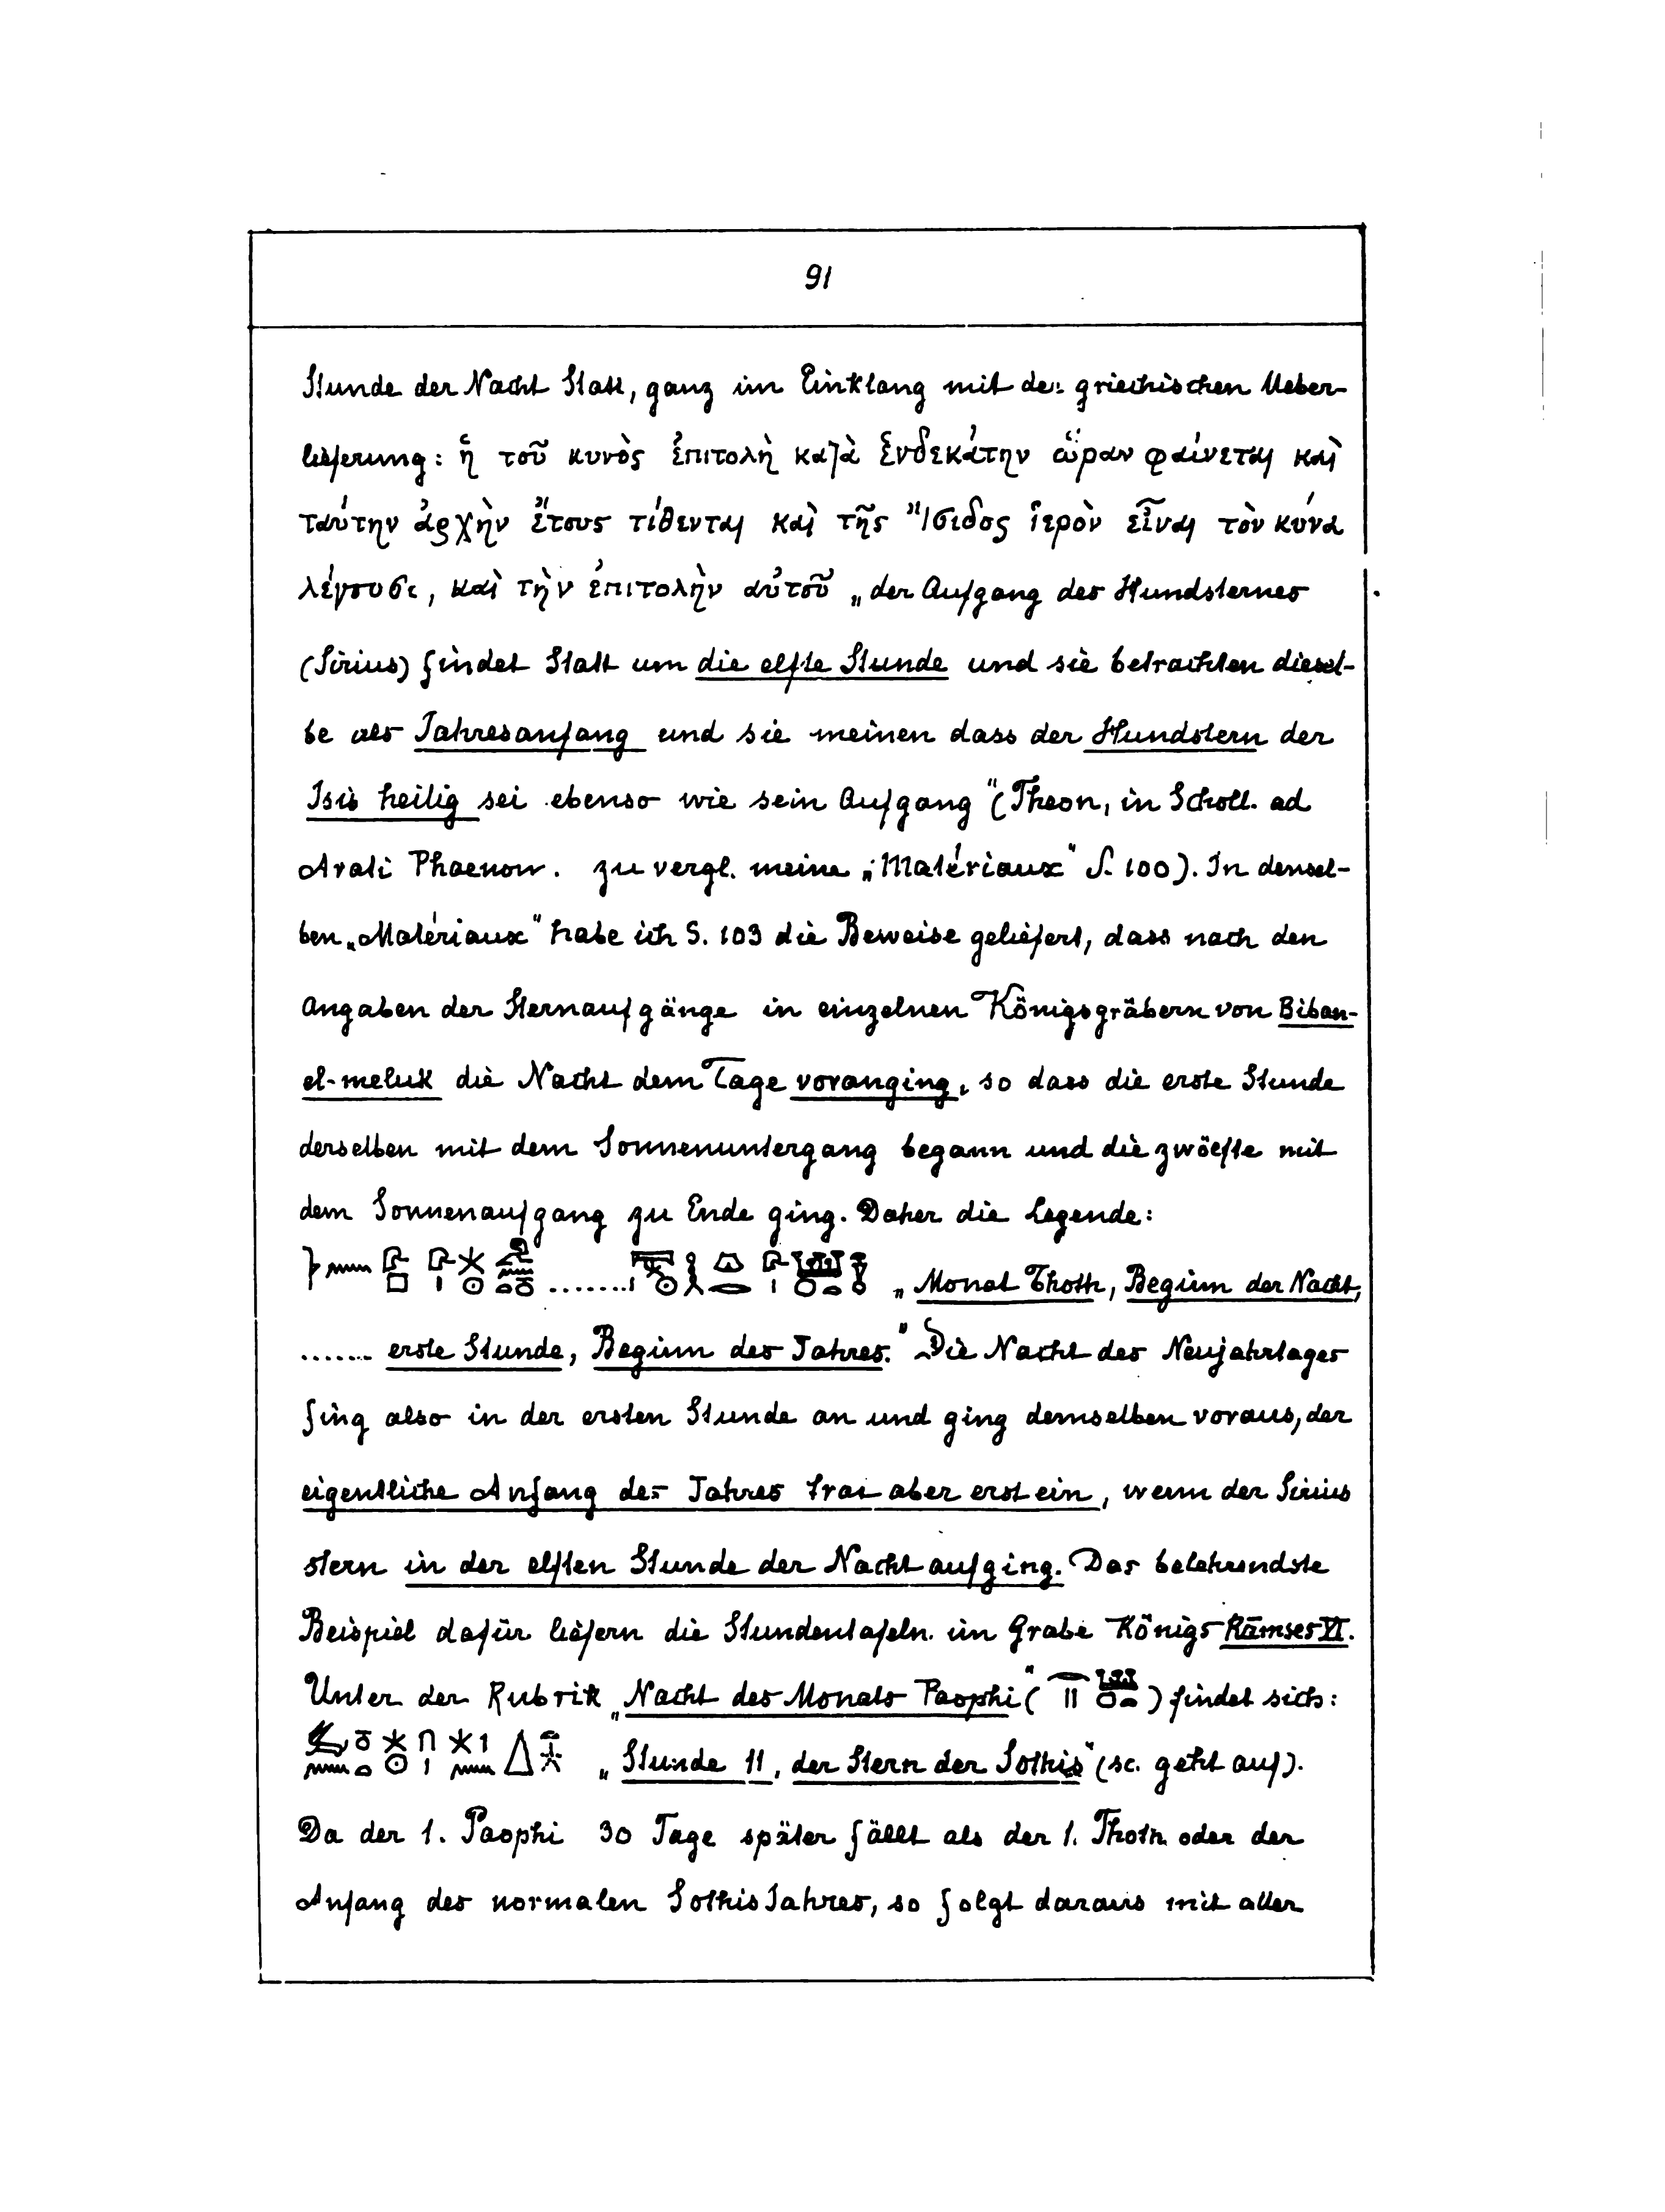 91
Stunde der Nacht Statt, ganz im Einklang mit der griechischen Ueber-
lieferung: ἡ τοῦ κυνὸς ἐπιτολὴ κατὰ ἑνδεκάτην ὥραν φαίνεται καὶ
ταύτην ἀρχὴν ἔτους τίθενται καὶ τῆς Ἴσιδος ἱερὸν εἶναι τὸν κύνα
λέγουσι, καὶ τὴν ἐπιτολὴν αὐτοῦ „der Aufgang des Hundsternes
(Sirius) findet Statt um die elfte Stunde und sie betrachten diesel-
be als Jahresanfang und sie meinen dass der Hundstern der
Isis heilig sei ebenso wie sein Aufgang" (Theon, in Scholl. ad
Arati Phaenom. zu vergl. meine „Matériaux" S. 100). In densel-
ben „Matériaux" habe ich S. 103 die Beweise geliefert, dass nach den
Angaben der Sternaufgänge in einzelnen Königsgräbern von Biban-
el-meluk die Nacht dem Tage voranging, so dass die erste Stunde
derselben mit dem Sonnenuntergang begann und die zwölfte mit
dem Sonnenaufgang zu Ende ging. Daher die Legende:
„Monat Thoth, Beginn der Nacht,
...... erste Stunde, Beginn des Jahres." Die Nacht des Neujahrtages
fing also in der ersten Stunde an und ging demselben voraus, der
eigentliche Anfang des Jahres trat aber erst ein, wenn der Sirius
stern in der elften Stunde der Nacht aufging. Das belehrendste
Beispiel dafür liefern die Stundentafeln im Grabe Königs Ramses VI.
Unter der Rubrik „Nacht des Monats Paophi" ( ) findet sich:
„Stunde 11, der Stern der Sothis" (sc. geht auf).
Da der 1. Paophi 30 Tage später fällt als der 1. Thoth oder der
Anfang des normalen Sothis Jahres, so folgt daraus mit aller